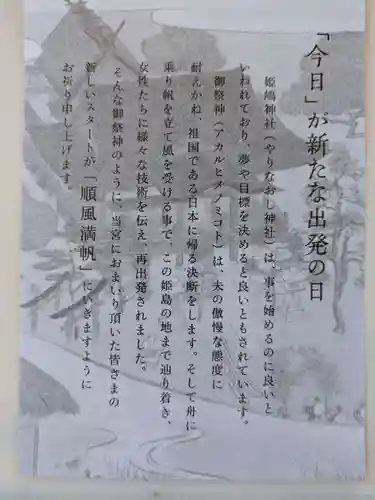 「今日」が新たな出発の日
姫嶋神社（やりなおし神社）は、事を始めるのに良いと
いわれており、夢や目標を決めると良いともされています。
御祭神（アカルヒメノミコト）は、夫の傲慢な態度に
耐えかね、祖国である日本に帰る決断をします。そして舟に
乗り帆を立て風を受ける事で、この姫島の地まで辿り着き、
女性たちに様々な技術を伝え、再出発されました。
そんな御祭神のように、当宮におまいり頂いた皆さまの
新しいスタートが「順風満帆」にいきますように
お祈り申し上げます。